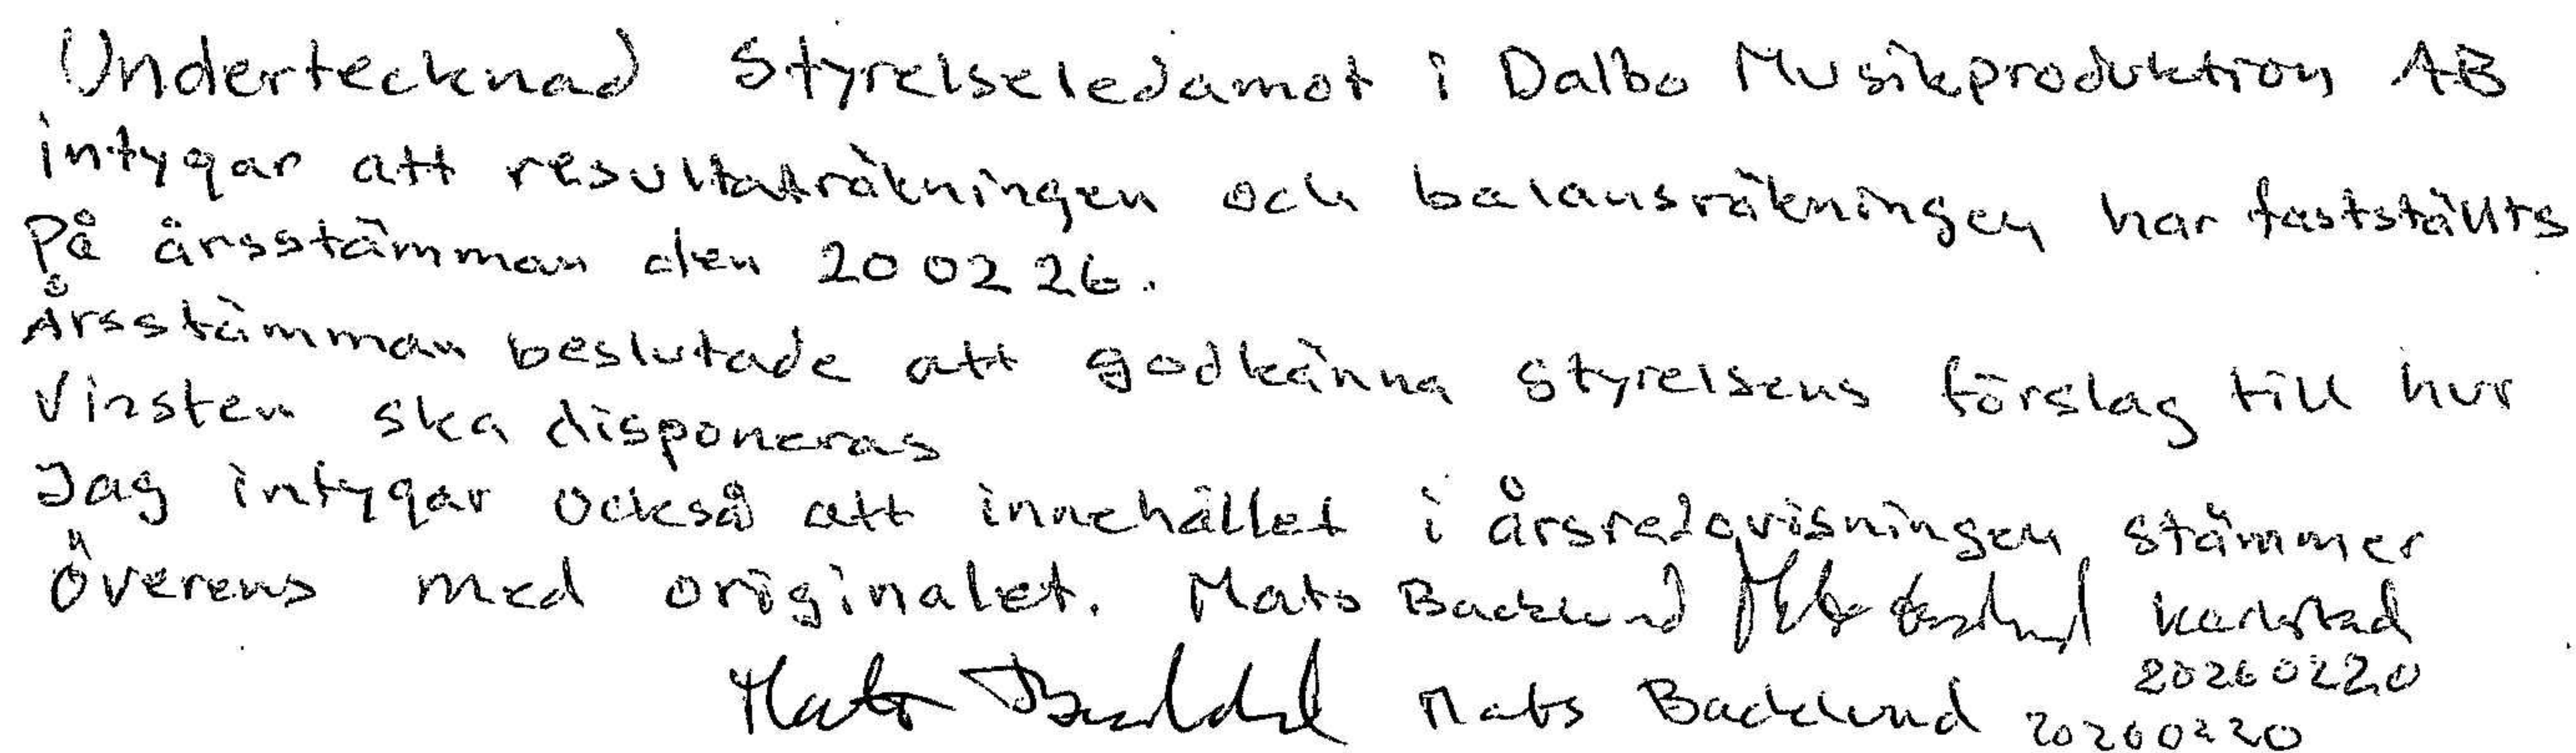 Undertecknad Styrelseledamot i Dalbo Musikproduktion AB
intygar att resultaträkningen och balansräkningen har fastställts
På årsstämman den 20 02 26.
Årsstämman beslutade att godkänna styrelsens förslag till hur
Vinsten ska disponeras
Jag intygar också att innehållet i årsredovisningen stämmer
Överens med originalet. Mats Backlund Mats Backlund Karlstad
20260220
Mats Backlund Mats Backlund 20260220